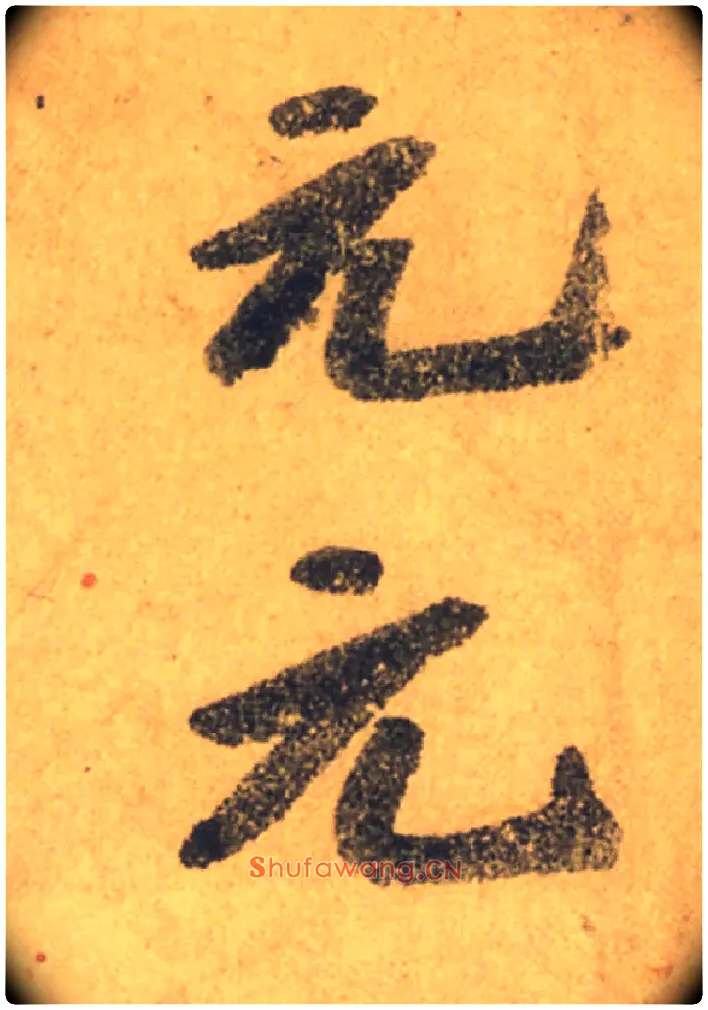 元
元
Shufawang.CN